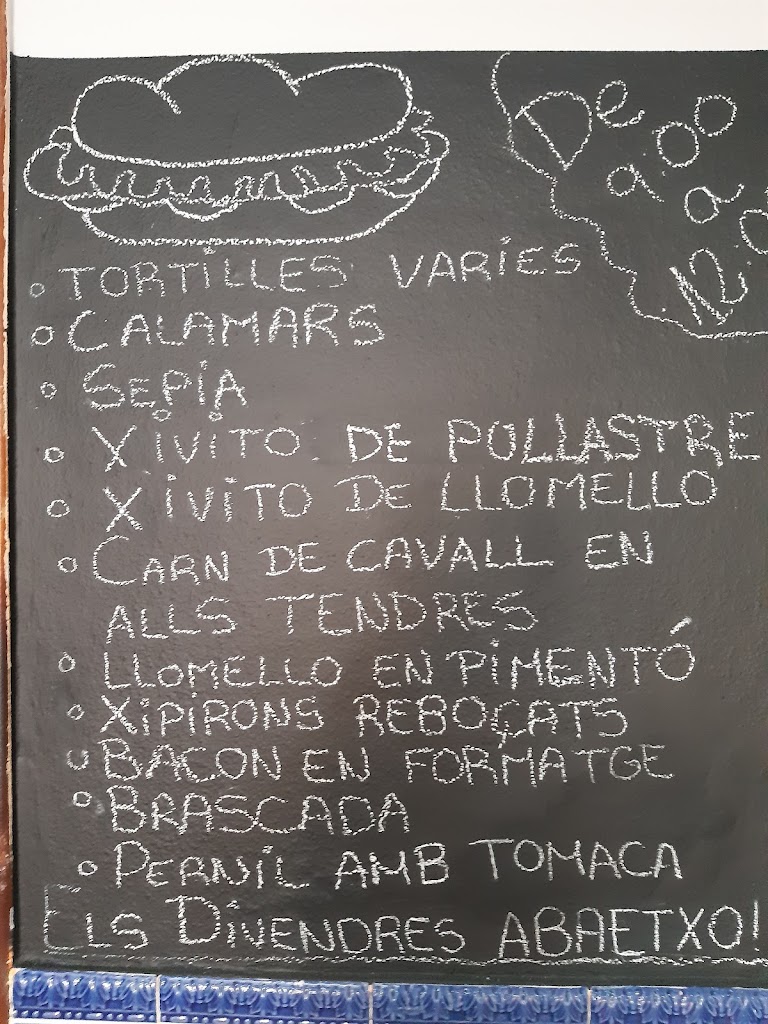 De
a
a
12
• TORTILLES VARIES
• CALAMARS
• SEPIA
• XIVITO DE POLLASTRE
• XIVITO DE LLOMELLO
• CARN DE CAVALL EN
ALLS TENDRES
• LLOMELLO EN PIMENTÓ
• XIPIRONS REBOÇATS
• BACON EN FORMATGE
• BRASCADA
• PERNIL AMB TOMACA
ELS DIVENDRES ABAETXO!